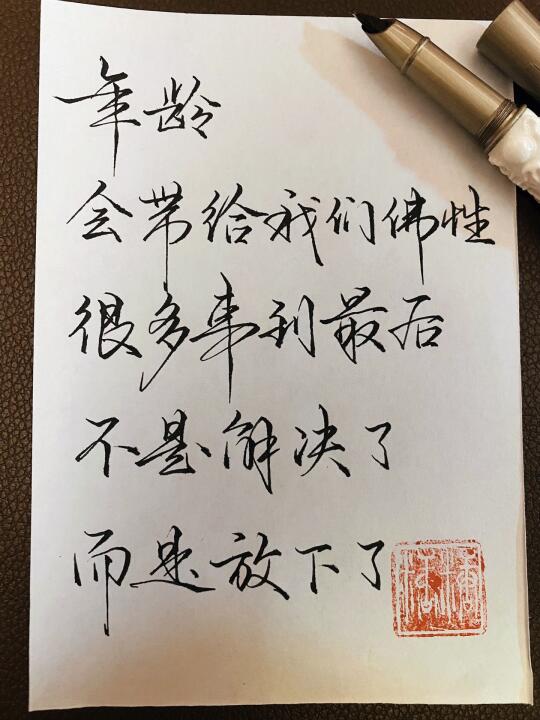 年龄
会带给我们佛性
很多事到最后
不是解决了
而是放下了